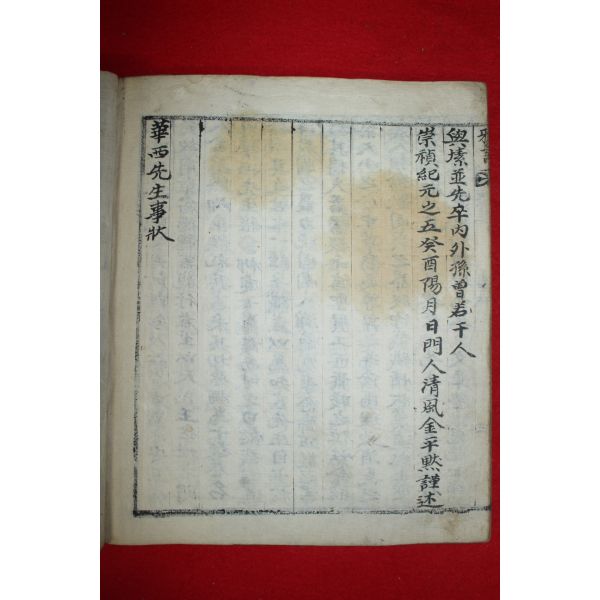 與壎並先卒內外孫曾若干人
崇禎紀元之五癸酉陽月日門人清風金平黙謹述
華西先生事狀